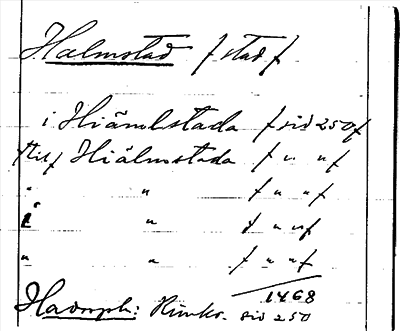 Halmstad / stad /
i Hiämlstada / sid 250 /
/till/ Hiälmstada / " " /
" " / " " /
i " / " " /
" " / " " /
1468
Hadorph: Rimkr. sid 250